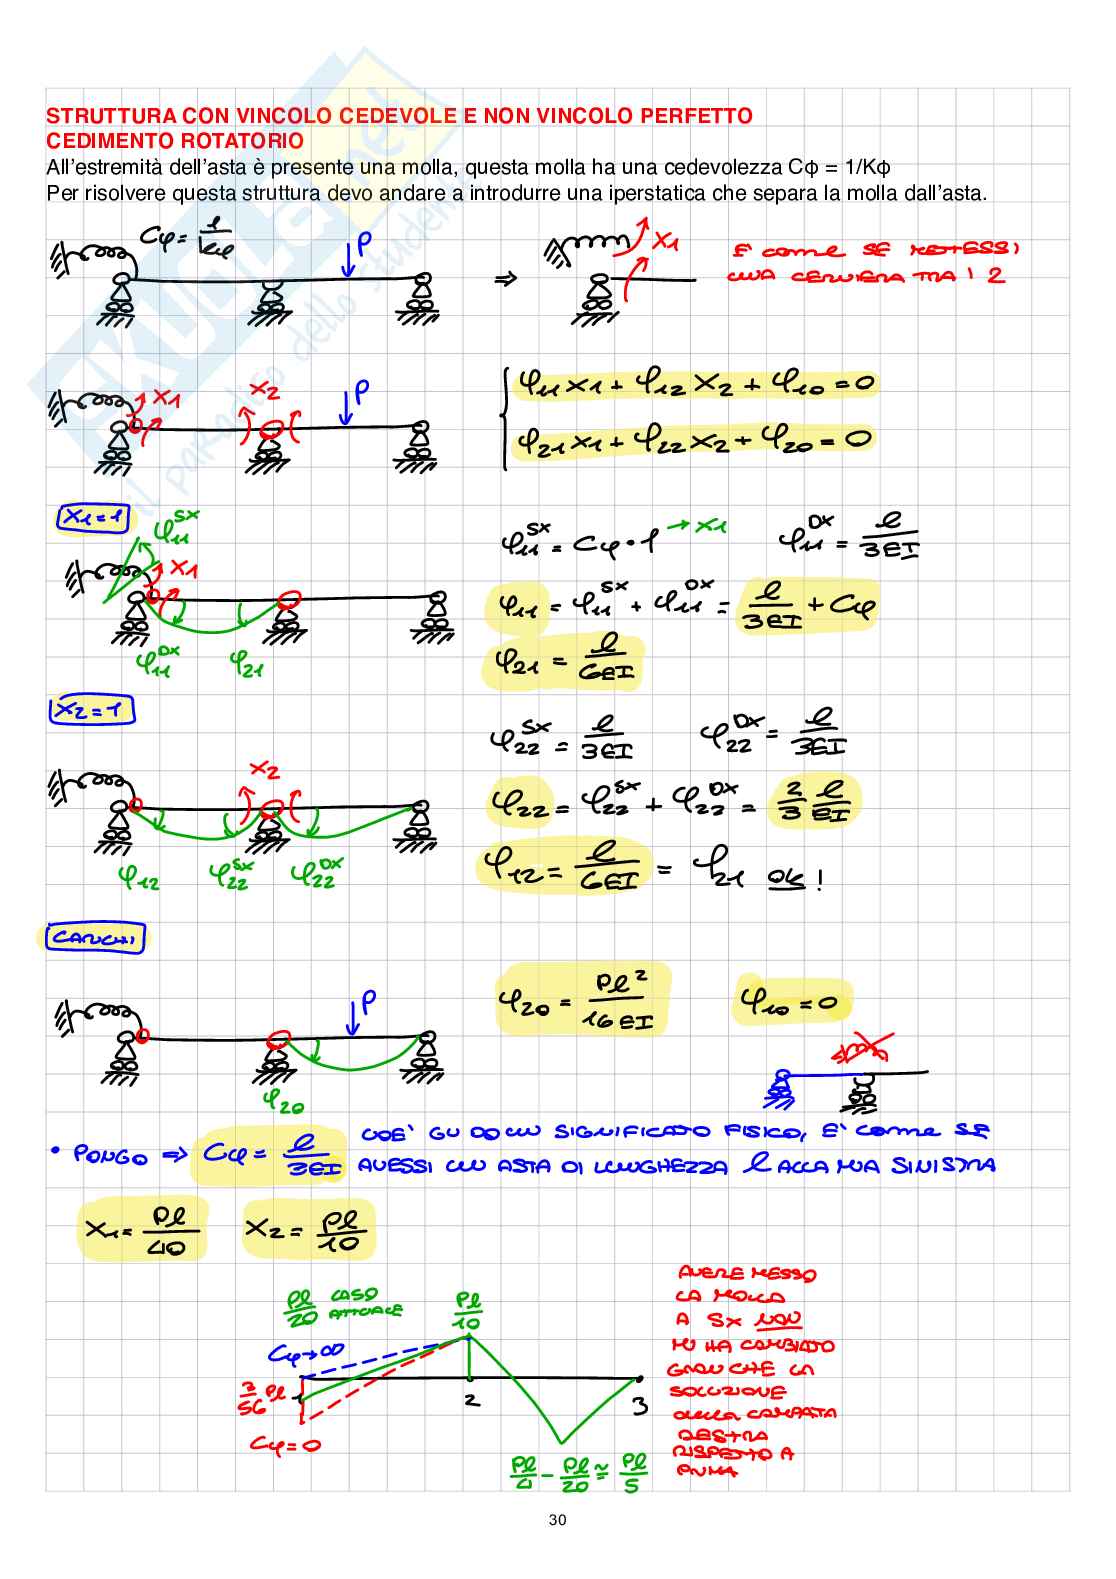 STRUTTURA CON VINCOLO CEDEVOLE E NON VINCOLO PERFETTO
CEDIMENTO ROTATORIO
All'estremità dell'asta è presente una molla, questa molla ha una cedevolezza Cϕ = 1/Kϕ
Per risolvere questa struttura devo andare a introdurre una iperstatica che separa la molla dall'asta.
Cφ = 1/Kφ
P
⇒
X1
E' COME SE METTESSI
UNA CERNIERA TRA I 2
X1
X2
P
φ11 X1 + φ12 X2 + φ10 = 0
φ21 X1 + φ22 X2 + φ20 = 0
X1 = 1
φ11^SX
X1
φ11^DX
φ21
φ11^SX = Cφ · 1 → X1
φ11^DX = l/3EI
φ11 = φ11^SX + φ11^DX = l/3EI + Cφ
φ21 = l/6EI
X2 = 1
X2
φ12
φ22^SX
φ22^DX
φ22^SX = l/3EI
φ22^DX = l/3EI
φ22 = φ22^SX + φ22^DX = 2/3 l/EI
φ12 = l/6EI = φ21 OK !
CARICHI
P
φ20
φ20 = Pl²/16EI
φ10 = 0
• PONGO ⇒ Cφ = l/3EI
CIOE' GLI DO UN SIGNIFICATO FISICO, E' COME SE
AVESSI UN ASTA DI LUNGHEZZA l ALLA MIA SINISTRA
X1 = Pl/40
X2 = Pl/10
Pl/20 CASO ATTUALE
Pl/10
Cφ → ∞
3/56 Pl
1
2
3
Cφ = 0
Pl/4 - Pl/20 ≈ Pl/5
AVERE MESSO
LA MOLLA
A SX NON
MI HA CAMBIATO
GRANCHE LA
SOLUZIONE
DELLA CAMPATA
DESTRA
RISPETTO A
PRIMA
30
SKUOLA.net
il paradiso dello studente